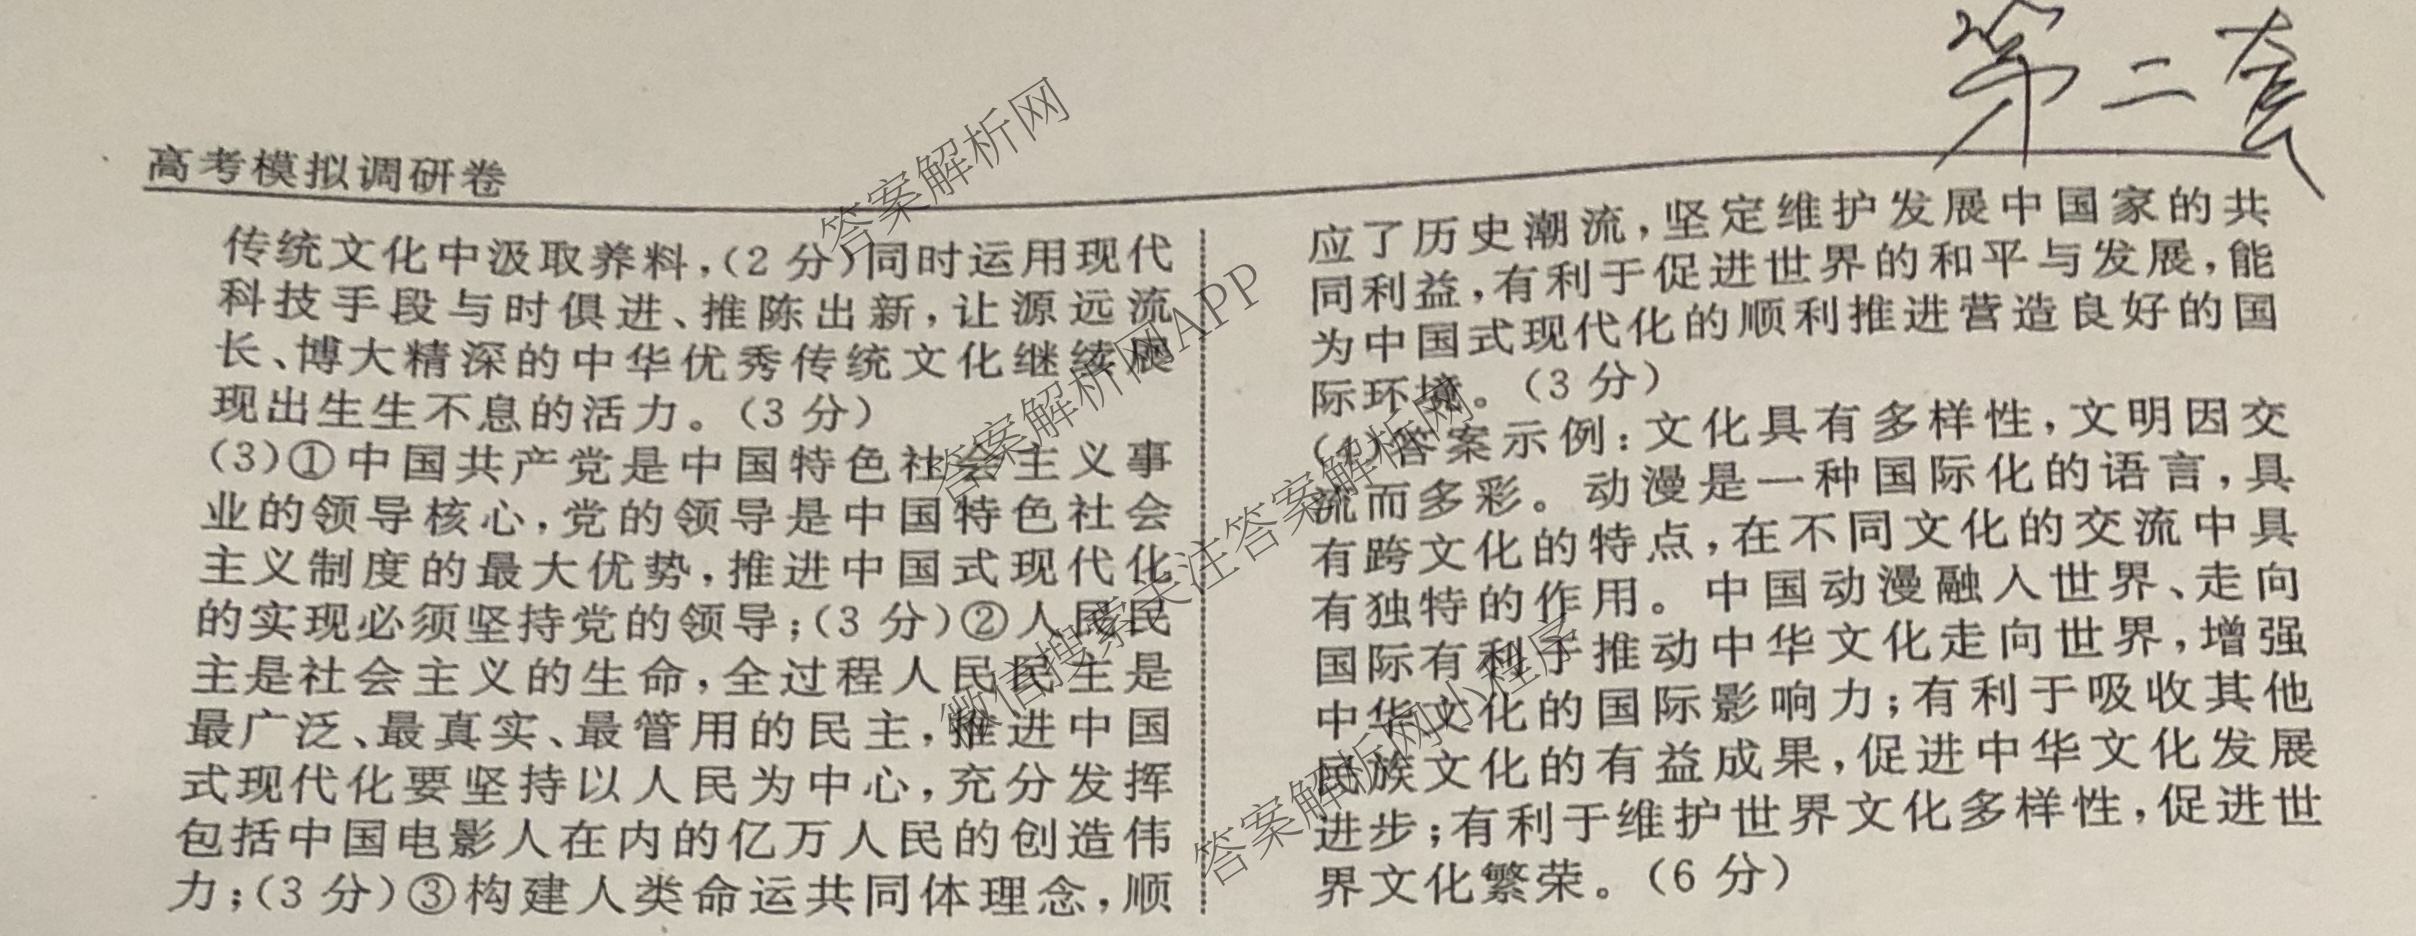 第二套
高考模拟调研卷
传统文化中汲取养料,(2分)同时运用现代
科技手段与时俱进、推陈出新,让源远流
长、博大精深的中华优秀传统文化继续展
现出生生不息的活力。(3分)
(3)①中国共产党是中国特色社会主义事
业的领导核心,党的领导是中国特色社会
主义制度的最大优势,推进中国式现代化
的实现必须坚持党的领导;(3分)②人民民
主是社会主义的生命,全过程人民民主是
最广泛、最真实、最管用的民主,推进中国
式现代化要坚持以人民为中心,充分发挥
包括中国电影人在内的亿万人民的创造伟
力;(3分)③构建人类命运共同体理念,顺
应了历史潮流,坚定维护发展中国家的共
同利益,有利于促进世界的和平与发展,能
为中国式现代化的顺利推进营造良好的国
际环境。(3分)
(4)答案示例:文化具有多样性,文明因交
流而多彩。动漫是一种国际化的语言,具
有跨文化的特点,在不同文化的交流中具
有独特的作用。中国动漫融入世界、走向
国际有利于推动中华文化走向世界,增强
中华文化的国际影响力;有利于吸收其他
民族文化的有益成果,促进中华文化发展
进步;有利于维护世界文化多样性,促进世
界文化繁荣。(6分)
答案解析网
答案解析网APP
微信搜索关注答案解析网
答案解析网小程序